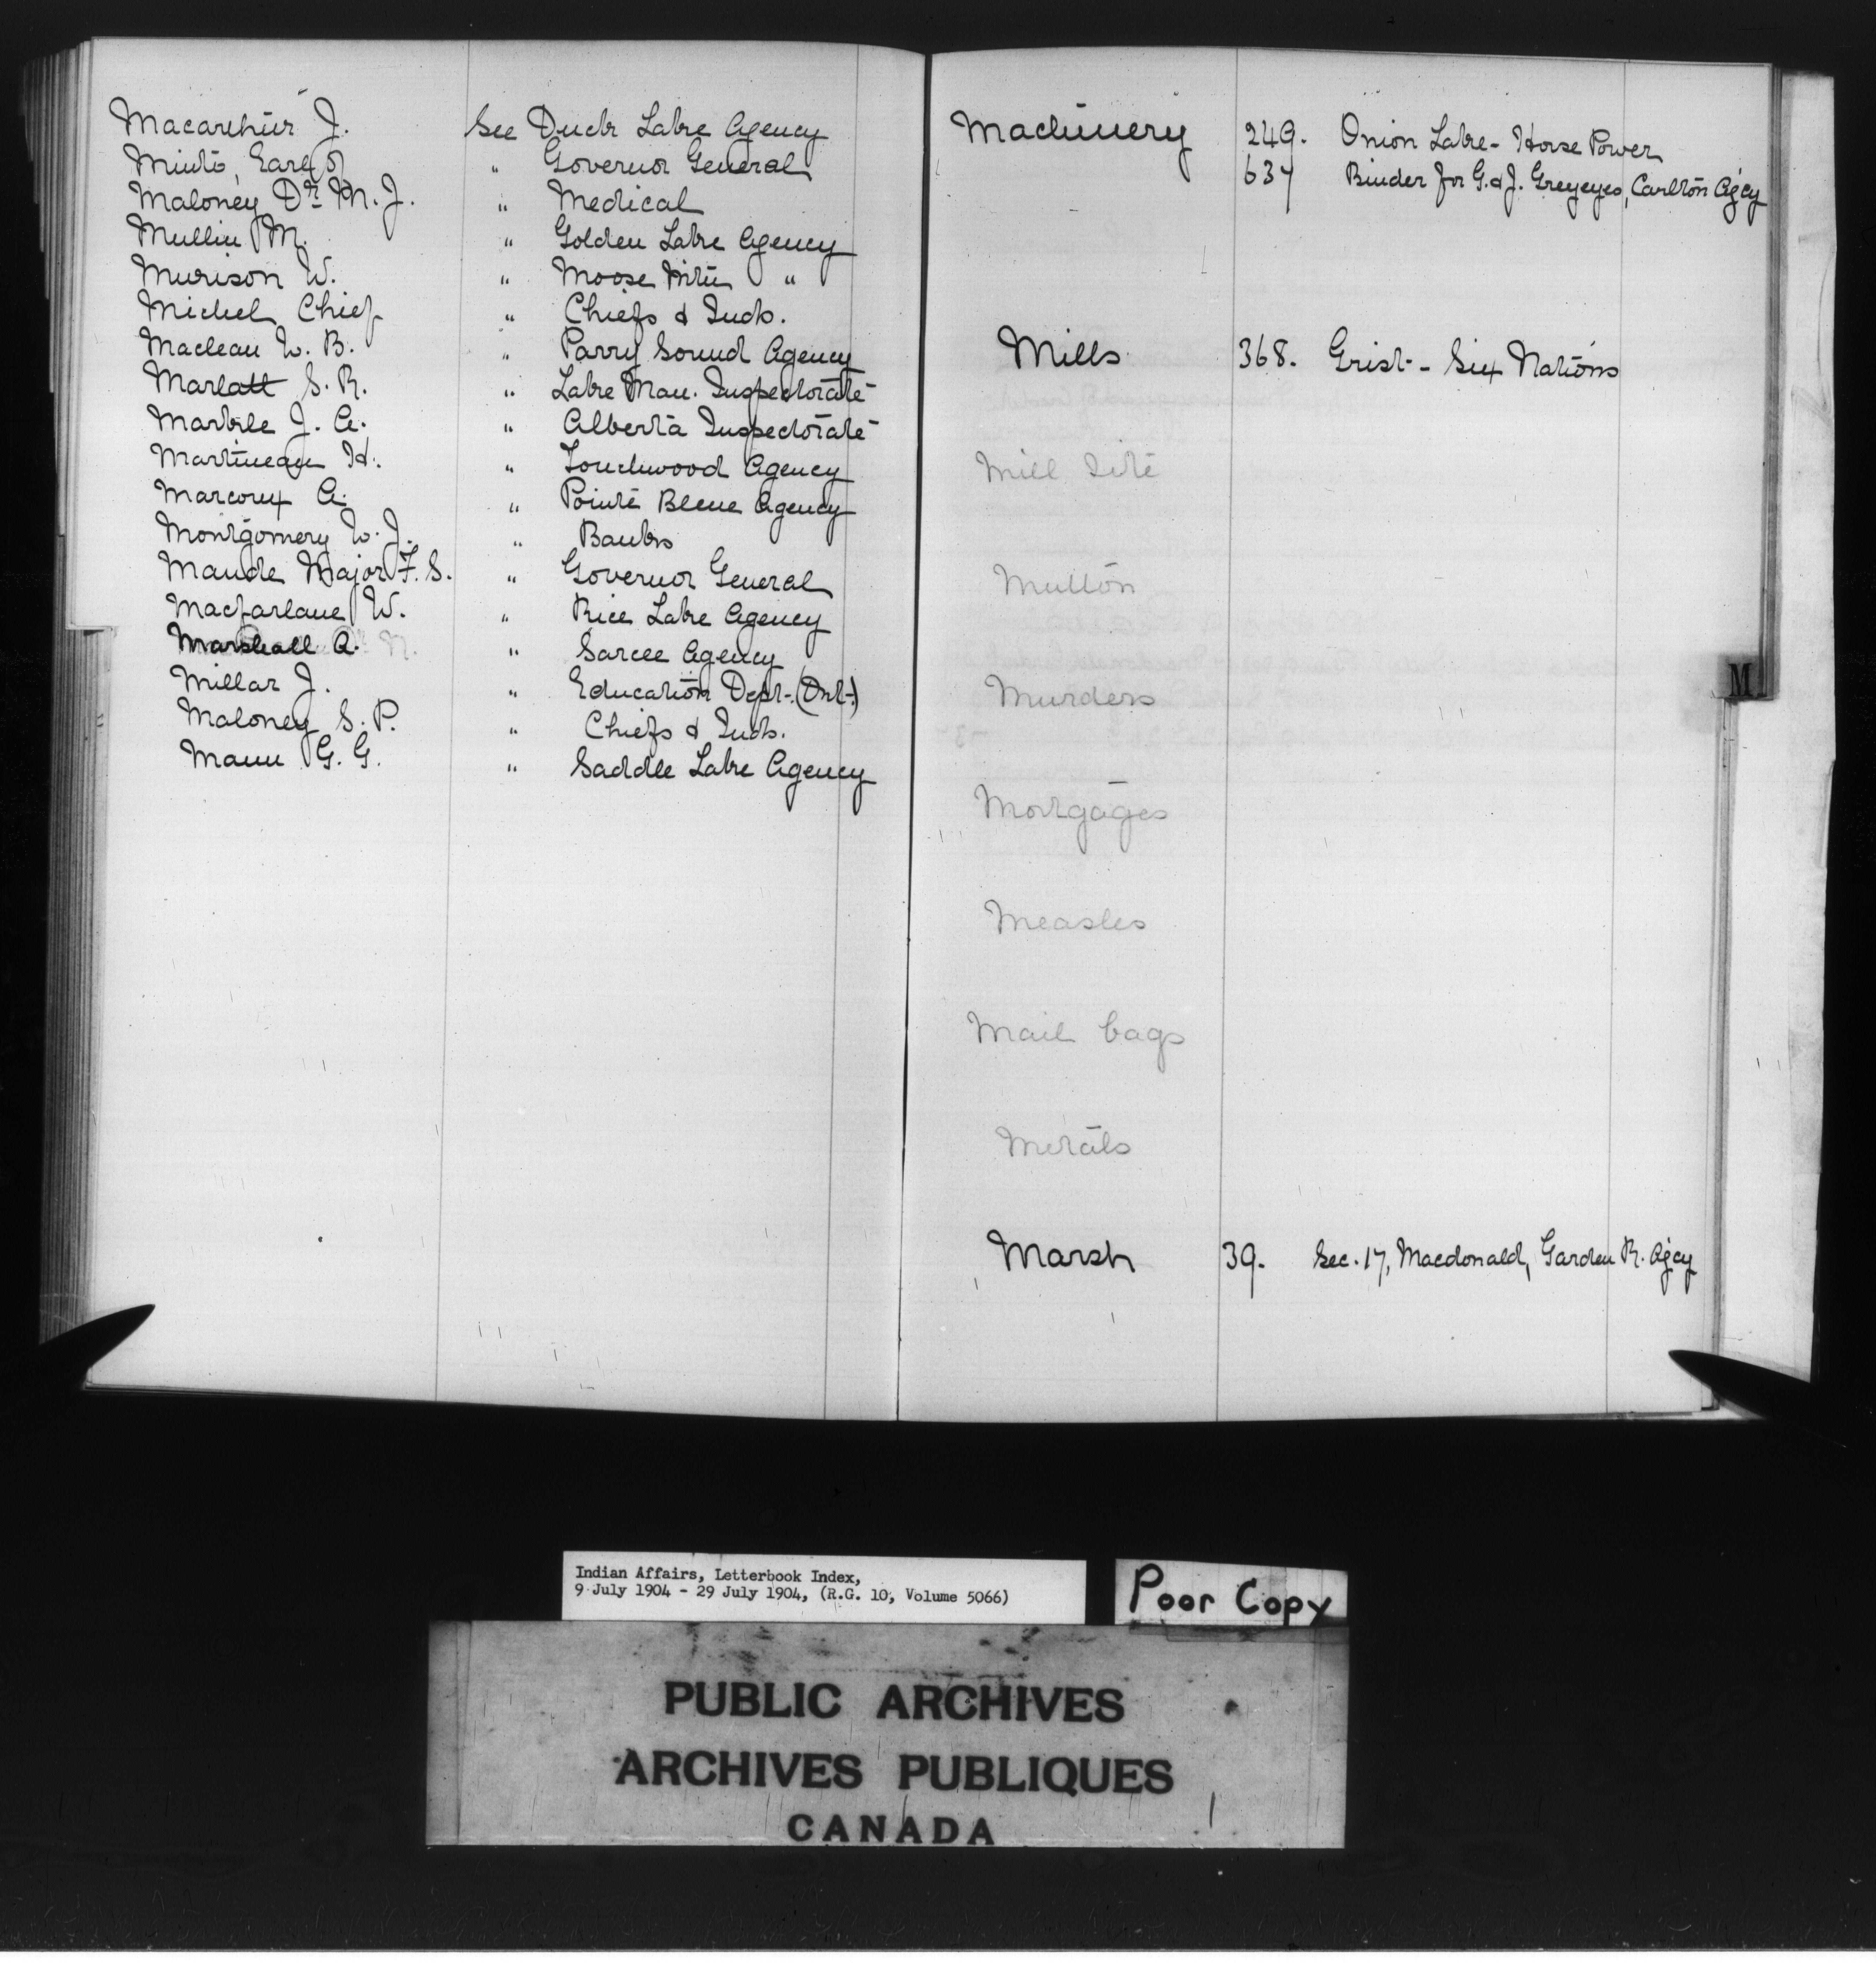 Macarthur J. See Duck Lake Agency
Minto, Earl of " Governor General
Maloney Dr M. J. " Medical
Mullin M. " Golden Lake Agency
Murison W. " Moose Mtn "
Michel Chief " Chiefs & Inds.
Maclean W. B. " Parry Sound Agency
Marlatt S. R. " Lake Man. Inspectorate
Markle J. A. " Alberta Inspectorate
Martineau H. " Touchwood Agency
Marcoux A. " Pointe Bleue Agency
Montgomery W. J. " Banks
Maude Major F. S. " Governor General
Macfarlane W. " Rice Lake Agency
Marshall A. " Sarcee Agency
Millar J. " Education Dept. (Ont.)
Maloney S. P. " Chiefs & Inds.
Mann G. G. " Saddle Lake Agency
Machinery 249. Onion Lake - Horse Power
637 Binder for G. & J. Greyeyes, Carlton Agcy
Mills 368. Grist - Six Nations
Mill Site
Mutton
Murders
M
Mortgages
Measles
Mail bags
Metals
Marsh 39. Sec. 17, Macdonald, Garden R. Agcy
Indian Affairs, Letterbook Index,
9 July 1904 - 29 July 1904, (R.G. 10, Volume 5066)
Poor Copy
PUBLIC ARCHIVES
ARCHIVES PUBLIQUES
CANADA